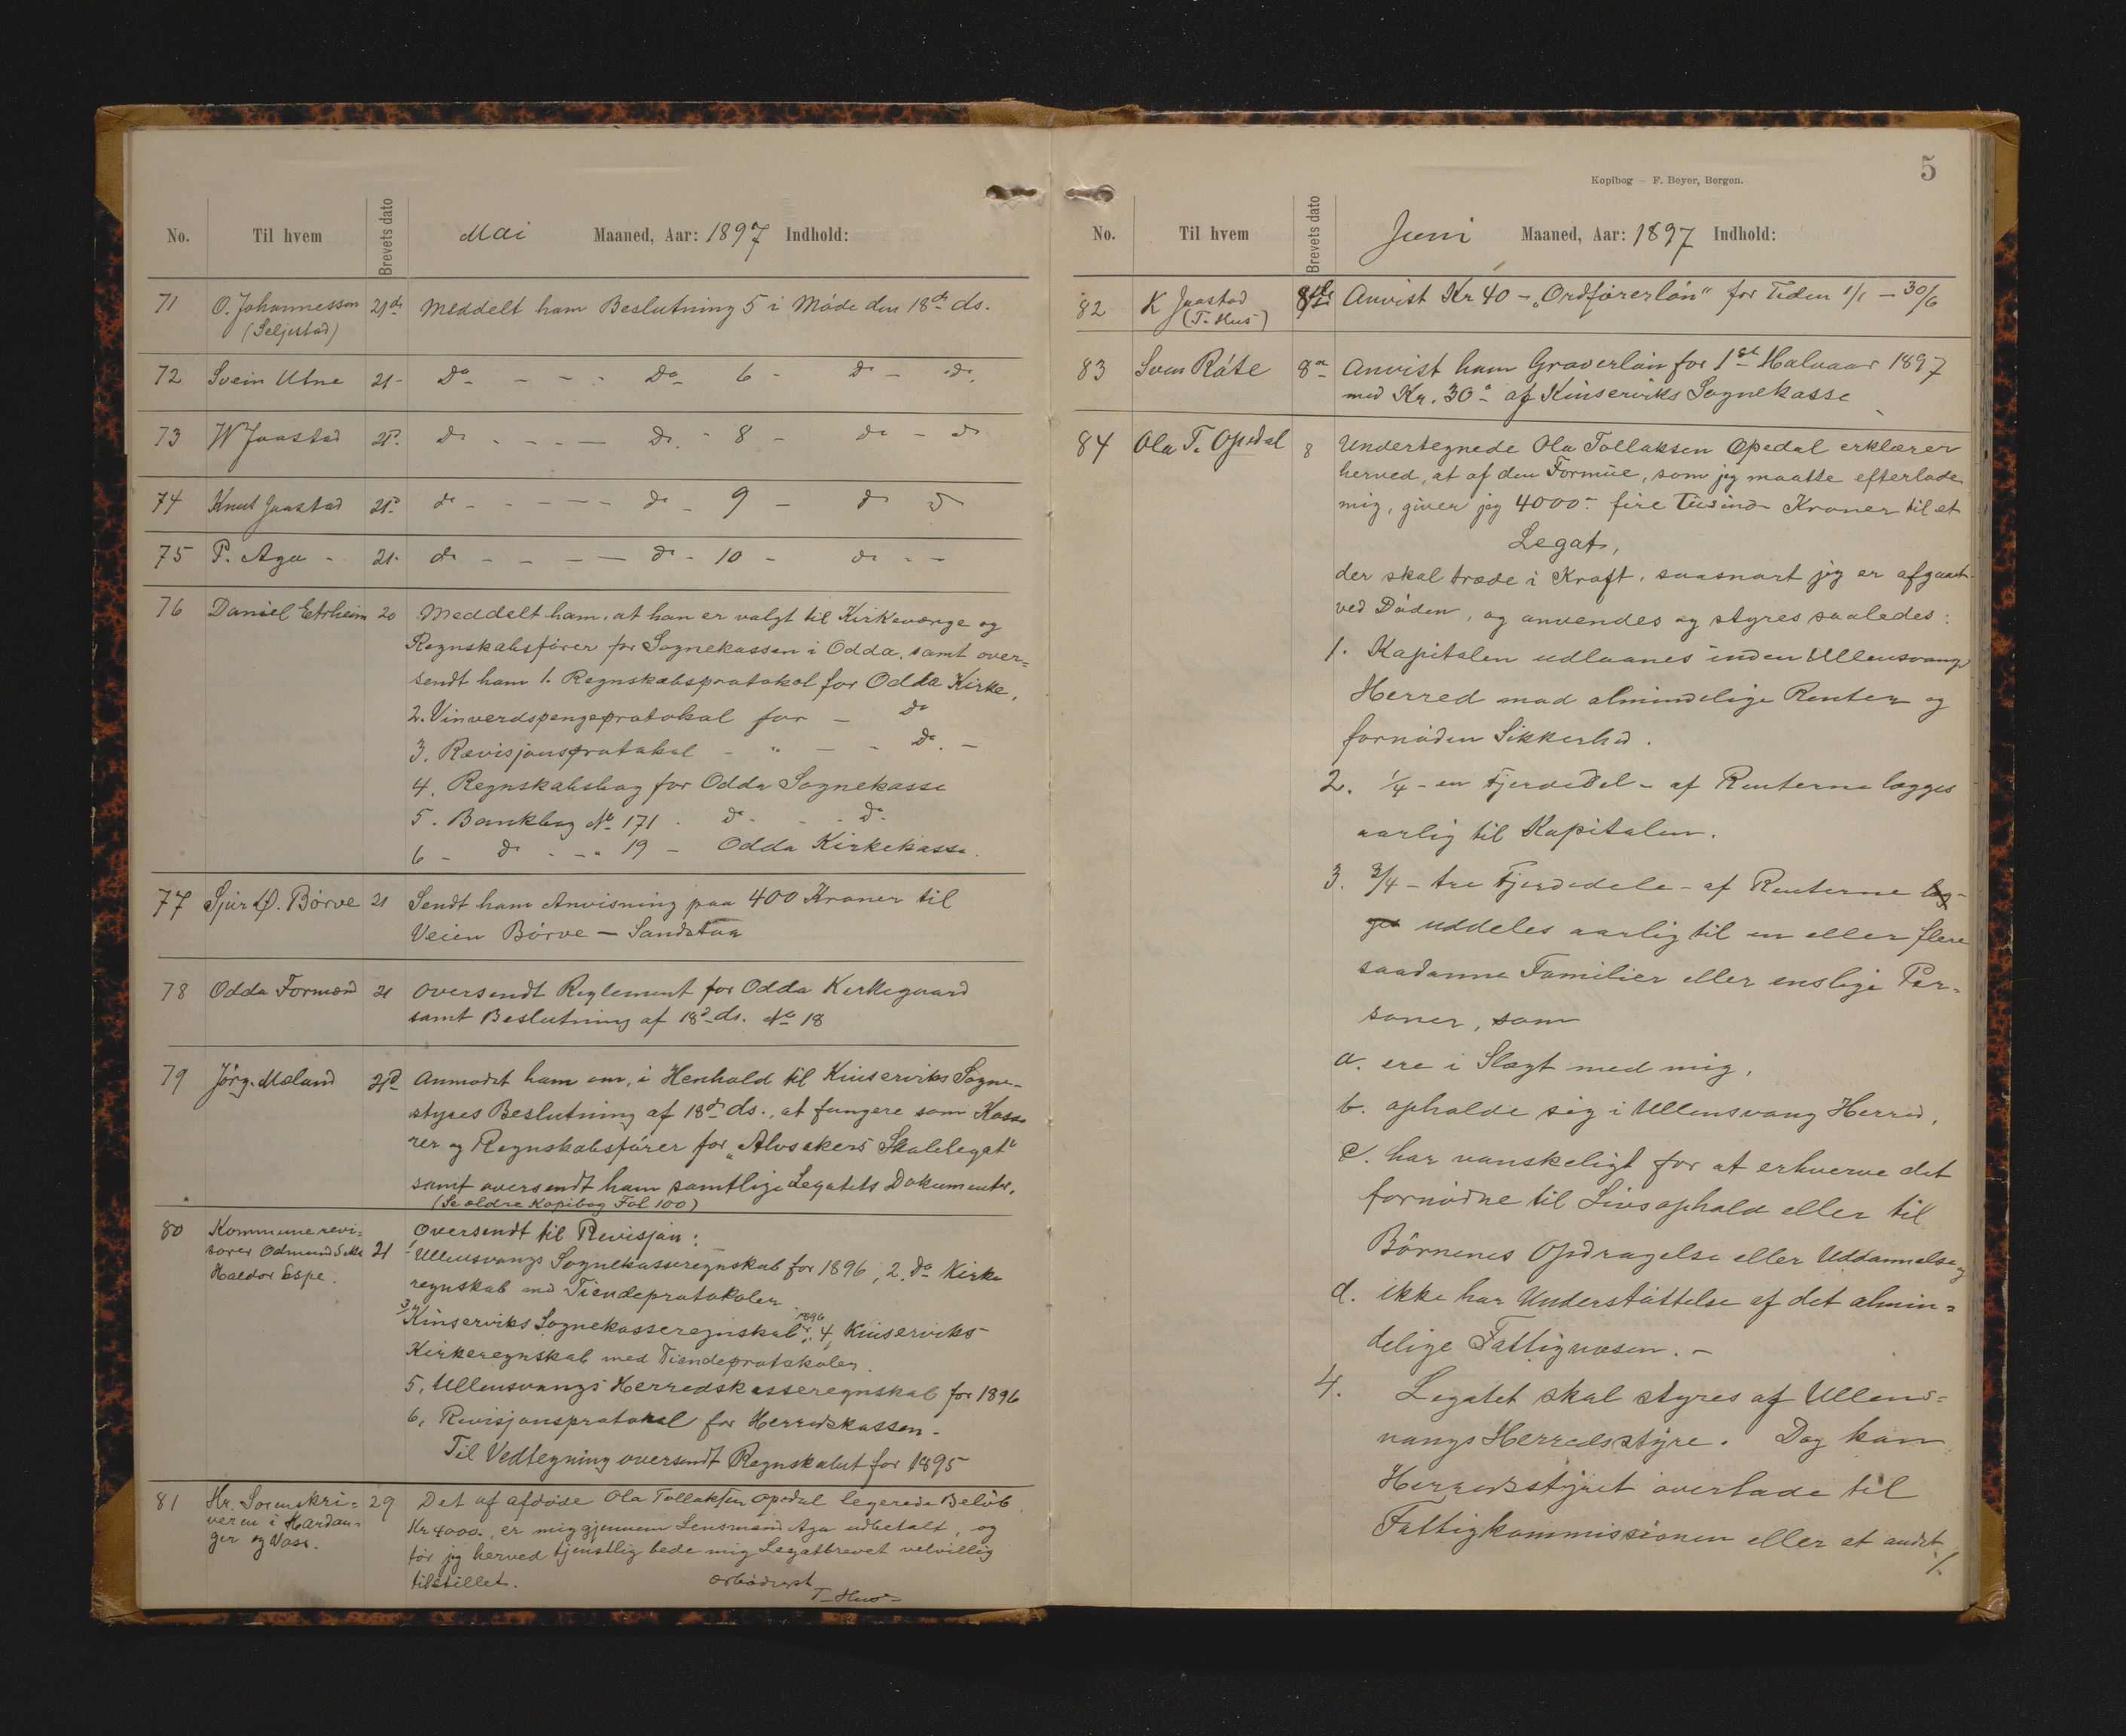 No. Til hvem Brevets dato Mai Maaned, Aar: 1897 Indhold:
71 O. Johannessen 21de Meddelt ham Beslutning 5 i Møde den 18de ds.
(Seljestad)
72 Svein Utne 21- Do - - - Do 6 - do - do.
73 W Jaastad 21d. do - - - - do. - 8 - do - do
74 Knut Jaastad 21d. do - - - - do - 9 - do do
75 P. Aga - 21- do - - - - do - 10 - do - -
76 Daniel Etrheim 20 Meddelt ham, at han er valgt til Kirkeværge og
Regnskabsfører for Sognekassen i Odda, samt over=
sendt ham 1. Regnskabsprotokol for Odda Kirke,
2. Vinverdspengeprotokol for - do
3. Revisjonsprotokol - " - - do. -
4. Regnskabsbog for Odda Sognekasse
5. Bankbog No 171 . do - - do.
6 - do - - " 19 - Odda Kirkekasse.
77 Sjur Ø. Børve 21 Sendt ham Anvisning paa 400 Kroner til
Veien Børve - Sandstøa
78 Odda Formænd 21 Oversendt Reglement for Odda Kirkegaard
samt Beslutning af 18d ds. No 18
79 Jörg. Mæland 21d Anmodet ham om, i Henhold til Kinserviks Sogne-
styres Beslutning af 18de ds., at fungere som Kasse
rer og Regnskabsfører for „Alvsakers Skolelegat“
samt oversendt ham samtlige Legatets Dokumenter,
(Se ældre Kopibog Fol 100)
80 Kommunerevi= Oversendt til Revisjon:
sorer Odmund Sekse 21 1 Ullensvangs Sognekasseregnskab for 1896, 2. do Kirke
Haldor Espe. regnskab med Tiendeprotokolen
3 Kinserviks Sognekasseregnskab f. 1896, 4, Kinserviks
Kirkeregnskab med Tiendeprotokolen.
5, Ullensvangs Herredskasseregnskab for 1896
6, Revisjonsprotokol for Herredskassen.
Til Vedtegning oversendt Regnskabet for 1895
81 Hr. Sorenskri= 29 Det af afdøde Ola Tollaksen Opedal legerede Beløb
veren i Hardan- Kr 4000.- er mig gjennem Lensmand Aga udbetalt, og
ger og Voss. tør jeg herved tjenstlig bede mig Legatbrevet velvillig
tilstillet. ærbødigst
T- Hus-
Kopibog - F. Beyer, Bergen. 5
No. Til hvem Brevets dato Juni Maaned, Aar: 1897 Indhold:
82 K Jaastad 8de Anvist Kr 40 - „Ordførerløn“ for Tiden 1/1 - 30/6
(T. Hus)
83 Sven Ráte 8de Anvist ham Graverløn for 1ste Halvaar 1897
med Kr. 30.- af Kinserviks Sognekasse
84 Ola T. Opedal 8 Undertegnede Ola Tollaksen Opedal erklærer
herved, at af den Formue, som jeg maatte efterlade
mig, giver jeg 4000.- fire Tusind Kroner til et
Legat,
der skal træde i Kraft, saasnart jeg er afgaaet
ved Døden, og anvendes og styres saaledes:
1. Kapitalen udlaanes inden Ullensvang
Herred mod almindelige Renter og
fornøden Sikkerhed.
2. 1/4 - en Fjerdedel - af Renterne lægges
aarlig til Kapitalen.
3. 3/4 - tre Fjerdedele - af Renterne læg-
ges uddeles aarlig til en eller flere
saadanne Familier eller enslige Per=
soner, som
a. ere i Slægt med mig,
b. opholde sig i Ullensvang Herred,
c. har vanskeligt for at erhverve det
fornødne til Livsophold eller til
Børnenes Opdragelse eller Uddannelse og
d. ikke har Understøttelse af det almin=
delige Fattigvæsen. -
4. Legatet skal styres af Ullens=
vangs Herredsstyre. Dog kan
Herredsstyret overlade til
Fattigkommissionen eller et andet
./.